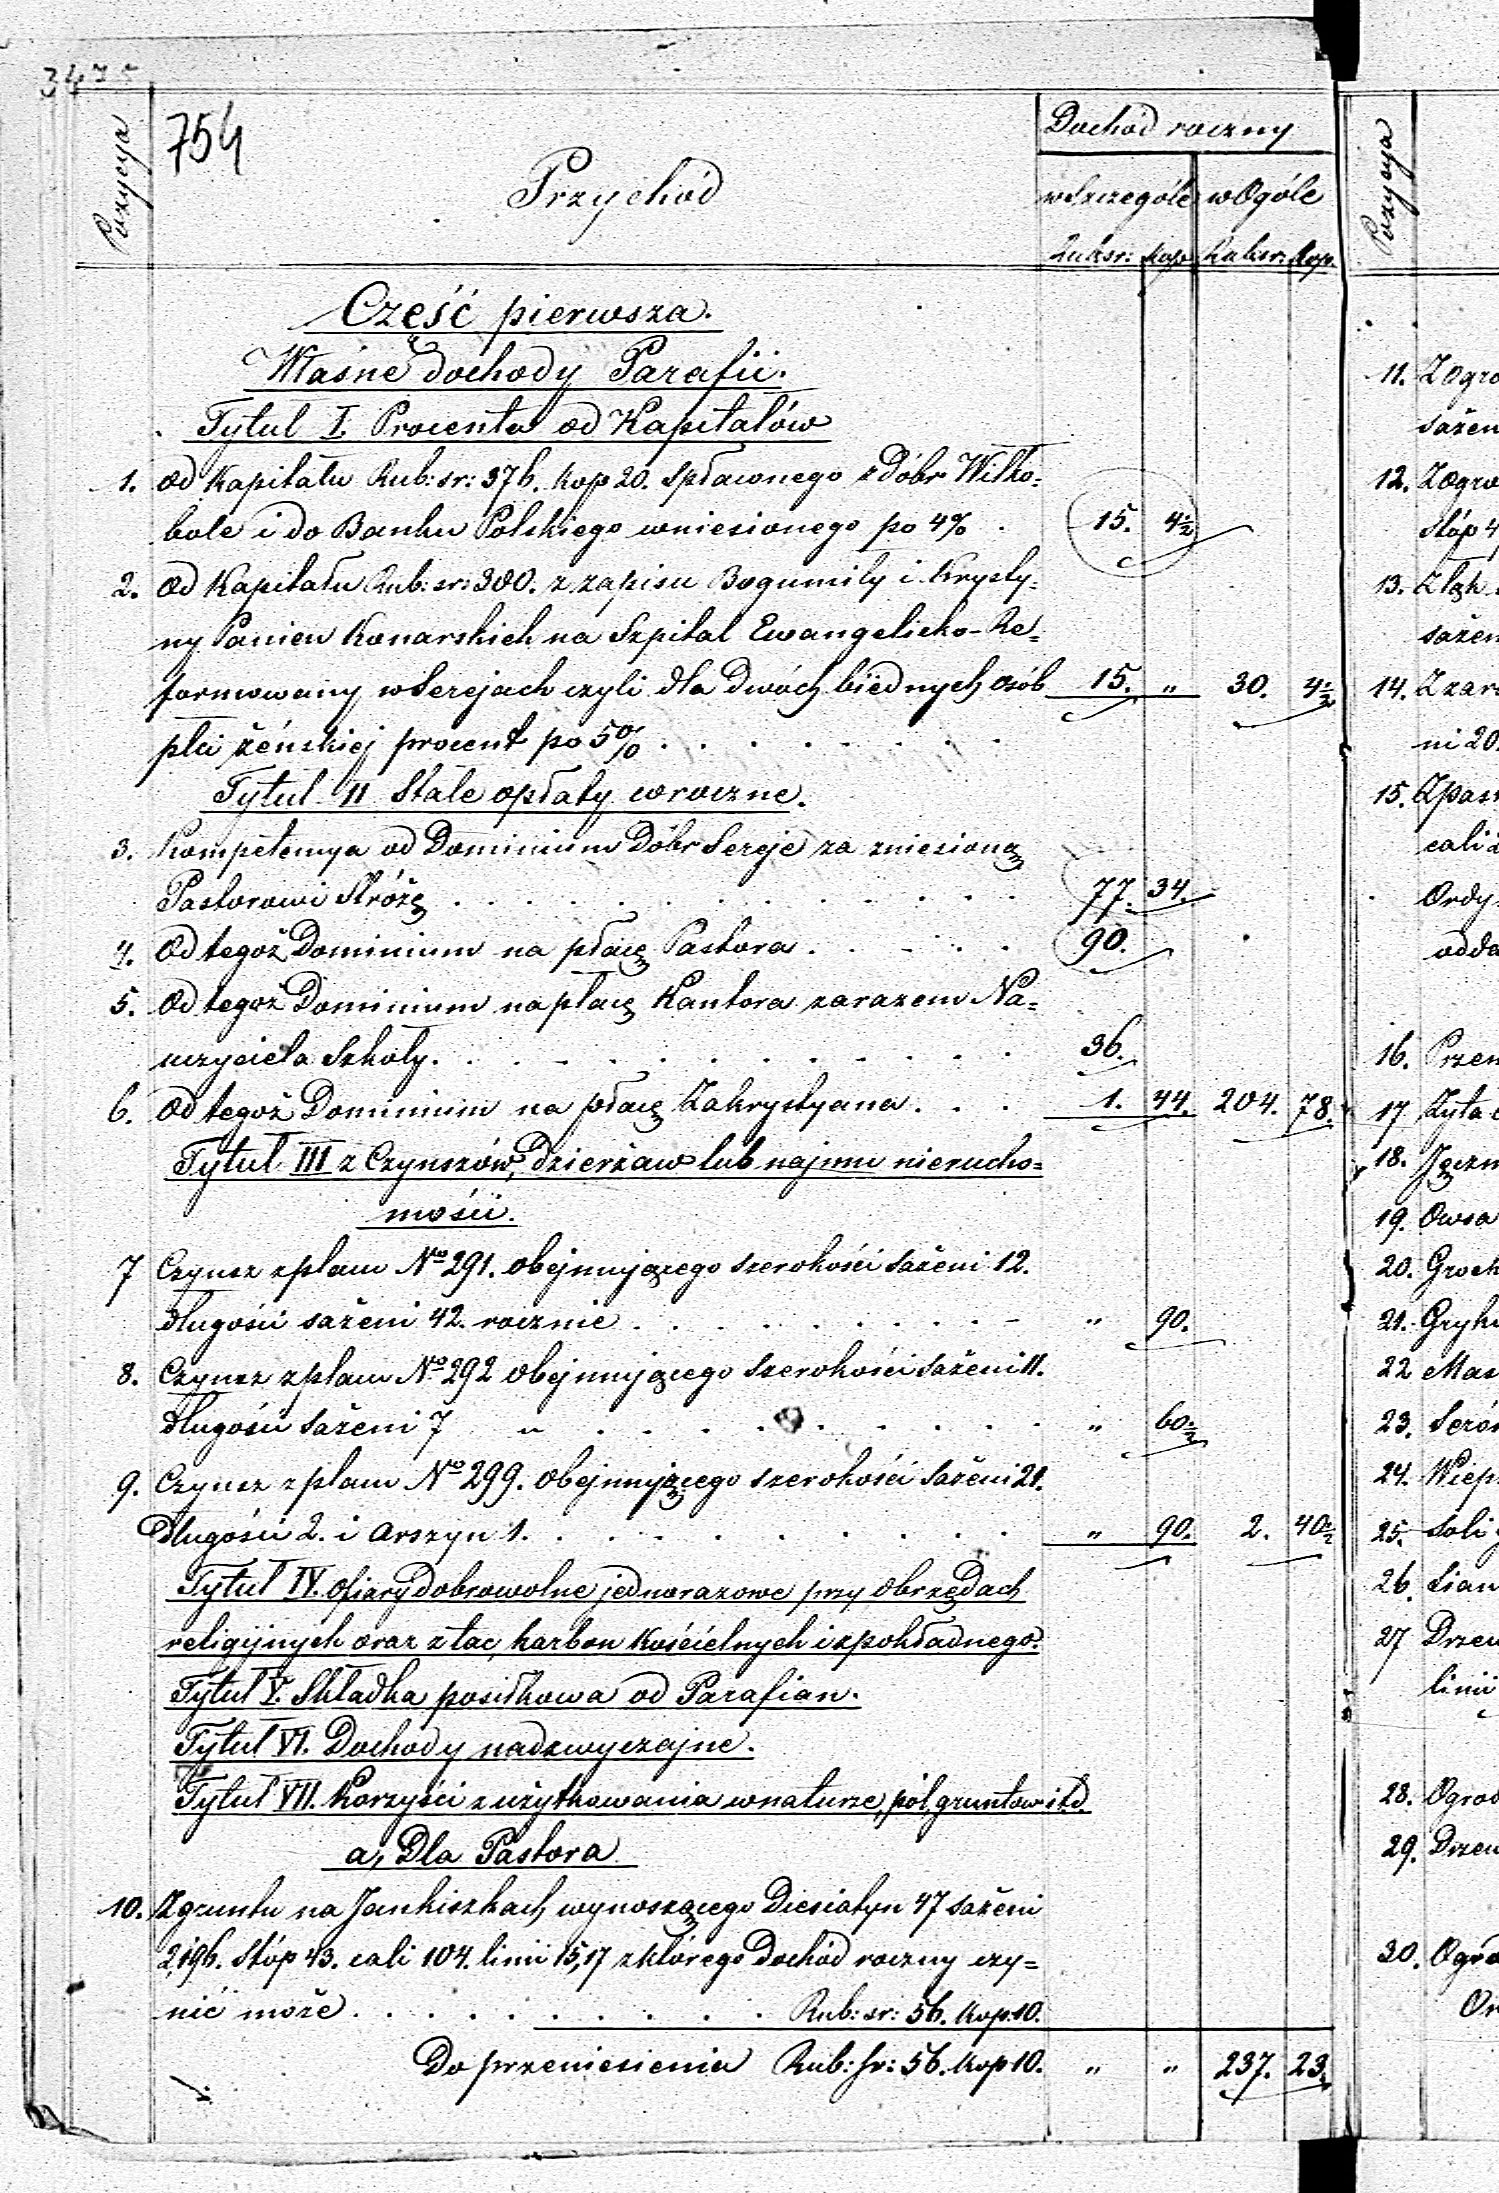 3475
Pozycya
754
Przychód
Dochód roczny
w Szczególe w Ogóle
Rubsr: Kop Rubsr: Kop.
Część pierwsza.
Własne dochody Parafii.
Tytuł I. Procenta od Kapitałów
1. Od Kapitału Rub: sr: 376. Kop 20. spławnego z Dóbr Wiłko=
bole i do Banku Polskiego wniesionego po 4% . 15. 4½
2. Od Kapitału Rub: sr: 300. z zapisu Bogumiły i Krysty=
ny Panien Konarskich na Szpital Ewangelicko-Re=
formowany w Serejach czyli dla dwóch biednych osób 15. „ 30. 4½
płci żeńskiej procent po 5% . . . . . . .
Tytuł II Stałe opłaty wroczne.
3. Kompetencya od Dominium Dóbr Sereje za zniesioną
Pastorowi Stróżę . . . . . . . . . . 77. 34.
4. Od tegoż Dominium na płacę Pastora . . . . . 90.
5. Od tegoż Dominium na płacę Kantora zarazem Na=
uczyciela Szkoły. . . . . . . . . . 36.
6. Od tegoż Dominium na płacę Zakrystyana. . . . 1. 44. 204. 78.
Tytuł III z Czynszów, Dzierżaw lub najmu nierucho=
mości.
7 Czynsz z placu No 291. obejmującego szerokości sażeni 12.
długości sażeni 42. rocznie . . . . . . . . „ 90.
8. Czynsz z placu No 292 obejmującego szerokości sażeni 11.
długości sażeni 7 „ . . . . . . . . „ 60½
9. Czynsz z placu No 299. obejmującego szerokości sażeni 21.
długości 2. i arszyn 1. . . . . . . . . „ 90. 2. 40½
Tytuł IV. Ofiary dobrowolne jednorazowe przy obrzędach
religijnych oraz z tac, karbon kościelnych i z pokładnego.
Tytuł V. Składka posiłkowa od Parafian.
Tytuł VI. Dochody nadzwyczajne.
Tytuł VII. Korzyści z użytkowania w naturze, pól, gruntów itd
a, Dla Pastora
10. Z gruntu na Jankiszkach wynoszącego Diesiatyn 47 sażeni
2,196. stóp 43. cali 104. linii 15,17 z którego dochód roczny czy=
nić może . . . . . . . . . Rub: sr: 56. Kop 10.
Do przeniesienia Rub: sr: 56. Kop 10. „ „ 237. 23.
Pozycya
11. Z Ogro
sażen
12. Z Ogro
stóp 4
13. Z łąk
sażen
14. Z zar
ni 20.
15. Z pas
cali
Ordy
odda
16. Przen
17 Żyta
18. Jęczm
19. Owsa
20. Groch
21. Gryki
22 Mas
23. Serów
24. Wiep
25. Soli
26. Sian
27 Drzew
linii
28. Ogrod
29. Drzew
30. Ogro
Or